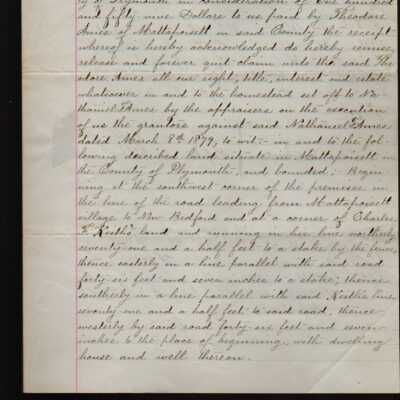 ty of Plymouth in consideration of One hundred
and fifty nine Dollars to us paid by Theodore
Ames of Mattapoisett in said County the receipt
whereof is hereby acknowledged do hereby remise,
release and forever quit claim unto the said The
odore Ames all our right, title, interest and estate
whatsoever in and to the homestead set off to Na-
thaniel F. Ames by the appraisers on the execution
of us the grantors against said Nathaniel F. Ames
dated March 8th 1879, to wit:- in and to the fol-
lowing described land situate in Mattapoisett in
the County of Plymouth, and bounded: Begin
ing at the southwest corner of the premises in
the line of the road leading from Mattapoisett
village to New Bedford and at a corner of Charles
land and running in her line northerly
seventy-one and a half feet to a stake by the fence,
thence easterly in a line parallel with said road
forty-six feet and seven inches to a stake; thence
southerly in a line parallel with said line
seventy-one and a half feet to said road, thence
westerly by said road forty-six feet and seven
inches to the place of beginning, with dwelling
house and well thereon.